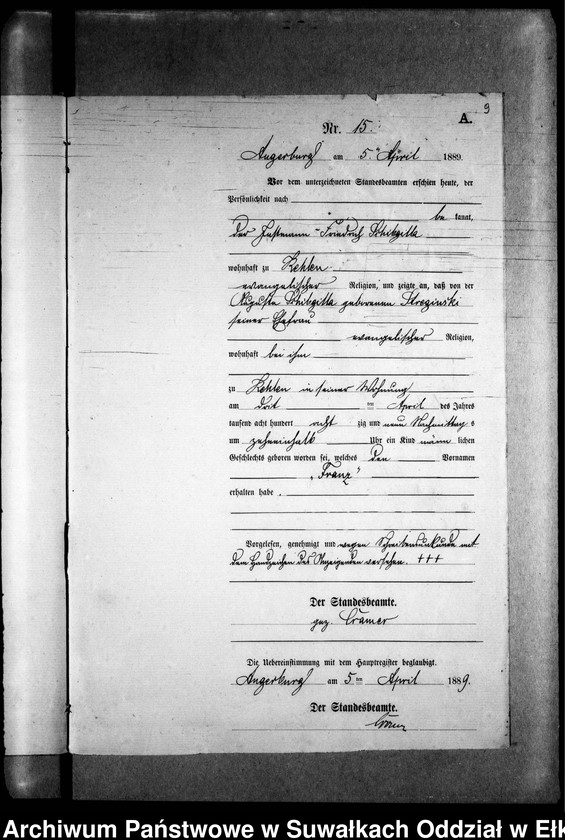 9
A.
Nr. 15.
Angerburg am 5. April 1889.
Vor dem unterzeichneten Standesbeamten erschien heute, der
Persönlichkeit nach
be kannt,
der Instmann Friedrich
wohnhaft zu Kehlen
evangelischer Religion, und zeigte an, daß von der
Auguste geborenen
seiner Ehefrau
evangelischer Religion,
wohnhaft bei ihm
zu Kehlen in seiner Wohnung
am April des Jahres
tausend acht hundert acht zig und neun Nachmittags
um zehneinhalb Uhr ein Kind männ lichen
Geschlechts geboren worden sei, welches den Vornamen
„Franz“
erhalten habe.
Vorgelesen, genehmigt und wegen Schreibensunkunde mit
dem Handzeichen des Anzeigenden versehen. +++
Der Standesbeamte.
gez. Cramer
Die Uebereinstimmung mit dem Hauptregister beglaubigt.
Angerburg am 5ten April 1889.
Der Standesbeamte.
Archiwum Państwowe w Suwałkach Oddział w Ełk